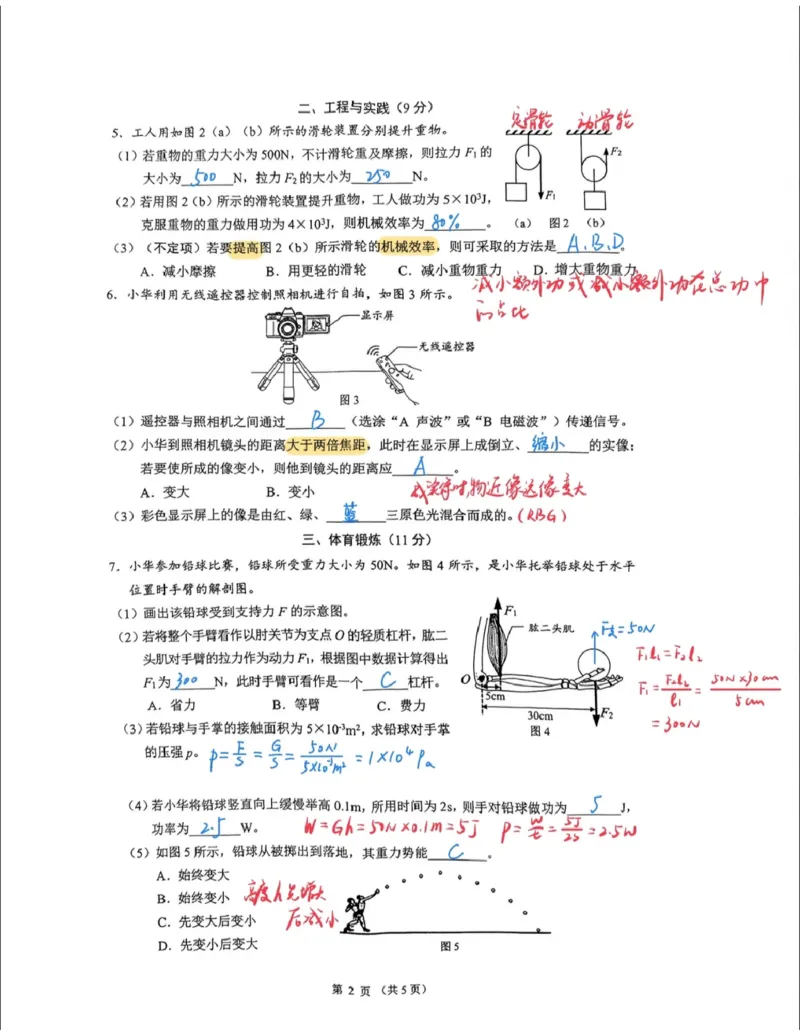 二、工程与实践（9 分）
定滑轮 动滑轮
5、工人用如图 2（a）（b）所示的滑轮装置分别提升重物。
（1）若重物的重力大小为500N，不计滑轮重及摩擦，则拉力 F₁ 的
大小为 500 N，拉力 F₂ 的大小为 250 N。
F₂
F₁
（2）若用图 2（b）所示的滑轮装置提升重物，工人做功为 5×10³J，
克服重物的重力做用功为 4×10³J，则机械效率为 80% 。
（a） 图 2 （b）
（3）（不定项）若要提高图 2（b）所示滑轮的机械效率，则可采取的方法是 A、B、D 。
A．减小摩擦 B．用更轻的滑轮 C．减小重物重力 D．增大重物重力
减小额外功或减小额外功在总功中
的占比
6．小华利用无线遥控器控制照相机进行自拍，如图 3 所示。
显示屏
无线遥控器
图 3
（1）遥控器与照相机之间通过 B （选涂“A 声波”或“B 电磁波”）传递信号。
（2）小华到照相机镜头的距离大于两倍焦距，此时在显示屏上成倒立、 缩小 的实像；
若要使所成的像变小，则他到镜头的距离应 A 。
A．变大 B．变小
成实像时，物近像远像变大
（3）彩色显示屏上的像是由红、绿、 蓝 三原色光混合而成的。（RBG）
三、体育锻炼（11 分）
7．小华参加铅球比赛，铅球所受重力大小为 50N。如图 4 所示，是小华托举铅球处于水平
位置时手臂的解剖图。
（1）画出该铅球受到支持力 F 的示意图。
（2）若将整个手臂看作以肘关节为支点 O 的轻质杠杆，肱二
头肌对手臂的拉力作为动力 F₁，根据图中数据计算得出
F₁ 为 300 N，此时手臂可看作是一个 C 杠杆。
A．省力 B．等臂 C．费力
F₁
肱二头肌
F支=50N
O
5cm
30cm
F₂
图 4
F₁l₁=F₂l₂
F₁=F₂l₂/l₁=50N×30cm/5cm
=300N
（3）若铅球与手掌的接触面积为 5×10⁻³m²，求铅球对手掌
的压强 p。 p=F/S=G/S=50N/5×10⁻³m²=1×10⁴Pa
（4）若小华将铅球竖直向上缓慢举高 0.1m，所用时间为 2s，则手对铅球做功为 5 J，
功率为 2.5 W。 W=Gh=50N×0.1m=5J P=W/t=5J/2s=2.5W
（5）如图 5 所示，铅球从被掷出到落地，其重力势能 C 。
A．始终变大
B．始终变小
C．先变大后变小
D．先变小后变大
高度h先增大
后减小
图 5
第 2 页 （共 5 页）